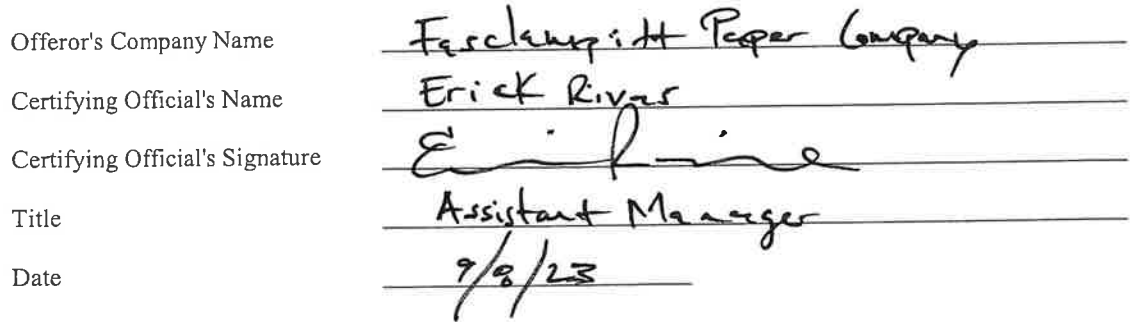 Offeror's Company Name Fasclampitt Paper Company
Certifying Official's Name Erick Rivas
Certifying Official's Signature
Title Assistant Manager
Date 9/8/23